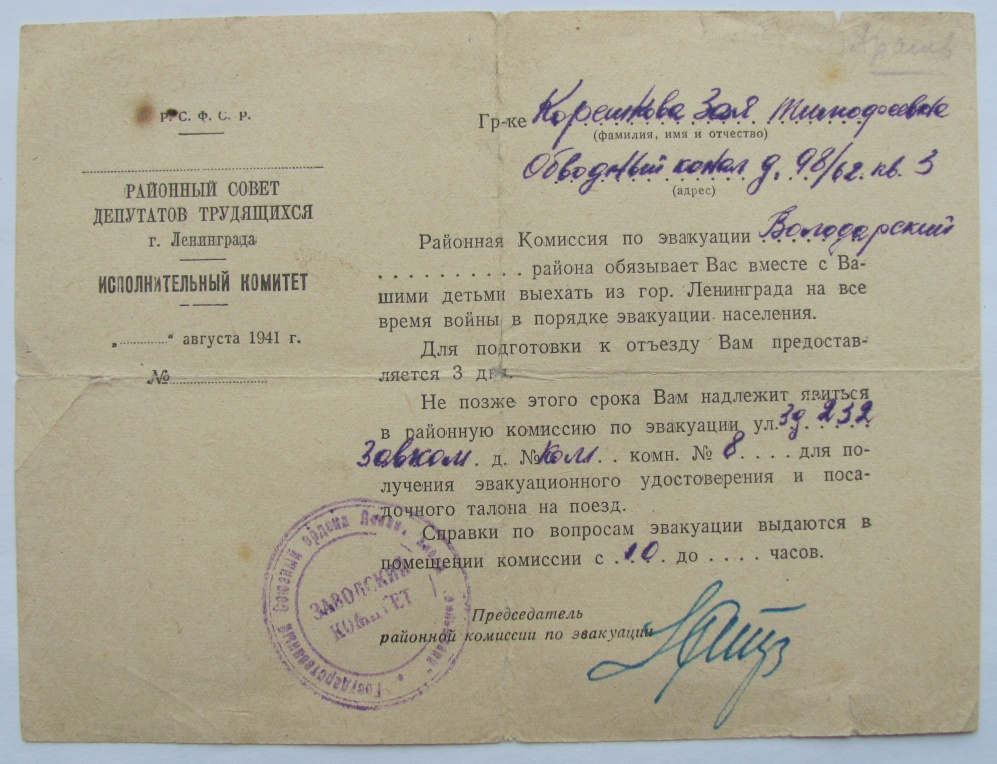 Р. С. Ф. С. Р.
РАЙОННЫЙ СОВЕТ
ДЕПУТАТОВ ТРУДЯЩИХСЯ
г. Ленинграда
ИСПОЛНИТЕЛЬНЫЙ КОМИТЕТ
„..........“ августа 1941 г.
№
Гр-ке Зоя Тимофеевна
(фамилия, имя и отчество)
Обводный канал д. 98/62 кв. 3
(адрес)
Районная Комиссия по эвакуации Володарский
. . . . . . . . . . района обязывает Вас вместе с Ва-
шими детьми выехать из гор. Ленинграда на все
время войны в порядке эвакуации населения.
Для подготовки к отъезду Вам предостав-
ляется 3 дня.
Не позже этого срока Вам надлежит явиться
в районную комиссию по эвакуации ул. Зд 232
Завком. д. № Ком. . комн. № 8 . . . . для по-
лучения эвакуационного удостоверения и поса-
дочного талона на поезд.
Справки по вопросам эвакуации выдаются в
помещении комиссии с 10 до . . . . часов.
Председатель
районной комиссии по эвакуации
Государственный Союзный ордена Ленина
ЗАВОДСКИЙ
КОМИТЕТ